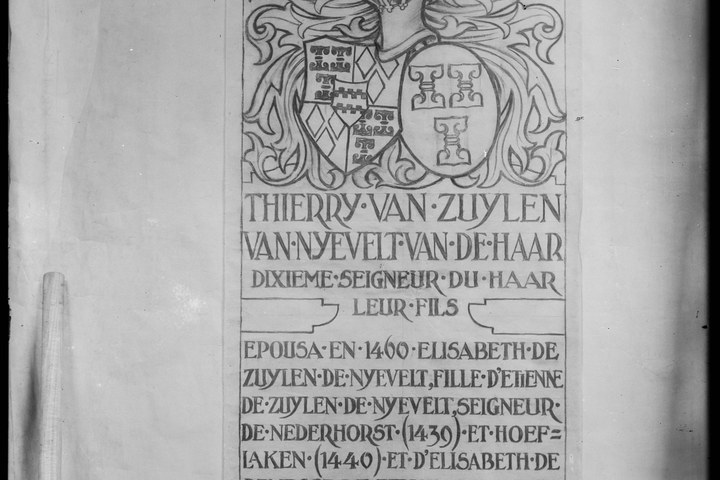 THIERRY·VAN·ZUYLEN
VAN·NYEVELT·VAN·DE·HAAR
DIXIEME·SEIGNEUR·DU·HAAR
LEUR·FILS
EPOUSA·EN·1460·ELISABETH·DE
ZUYLEN·DE·NYEVELT,FILLE·D'ETIENNE
DE·ZUYLEN·DE·NYEVELT,SEIGNEUR·
DE·NEDERHORST·(1439)·ET·HOEF=
LAKEN·(1440)·ET·D'ELISABETH·DE